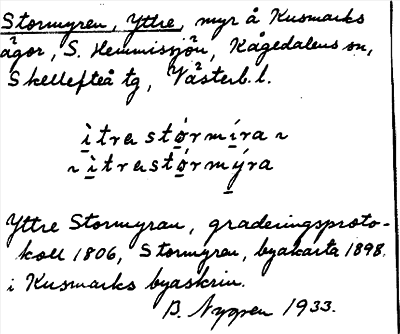 Stormyren, Yttre, myr å Kusmarks
ägor, S. Hemmissjön, Kågedalens sn,
Skellefteå tg, Västerb. l.
ìtra stórmíra ~
~ ìtrastórmýra
Yttre Stormyran, graderingsproto-
koll 1806, Stormyren, byakarta 1898.
i Kusmarks byaskrin.
B. Nygren 1933.